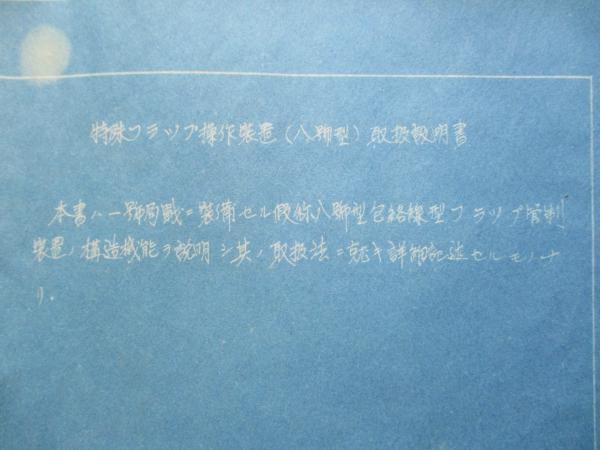 特殊フラップ操作装置(八號型)取扱説明書
本書ハ一號局戦ニ装備セル假称八號型包絡線型フラップ管制
装置ノ構造機能ヲ説明シ其ノ取扱法ニ就キ詳細記述セルモノナ
リ。